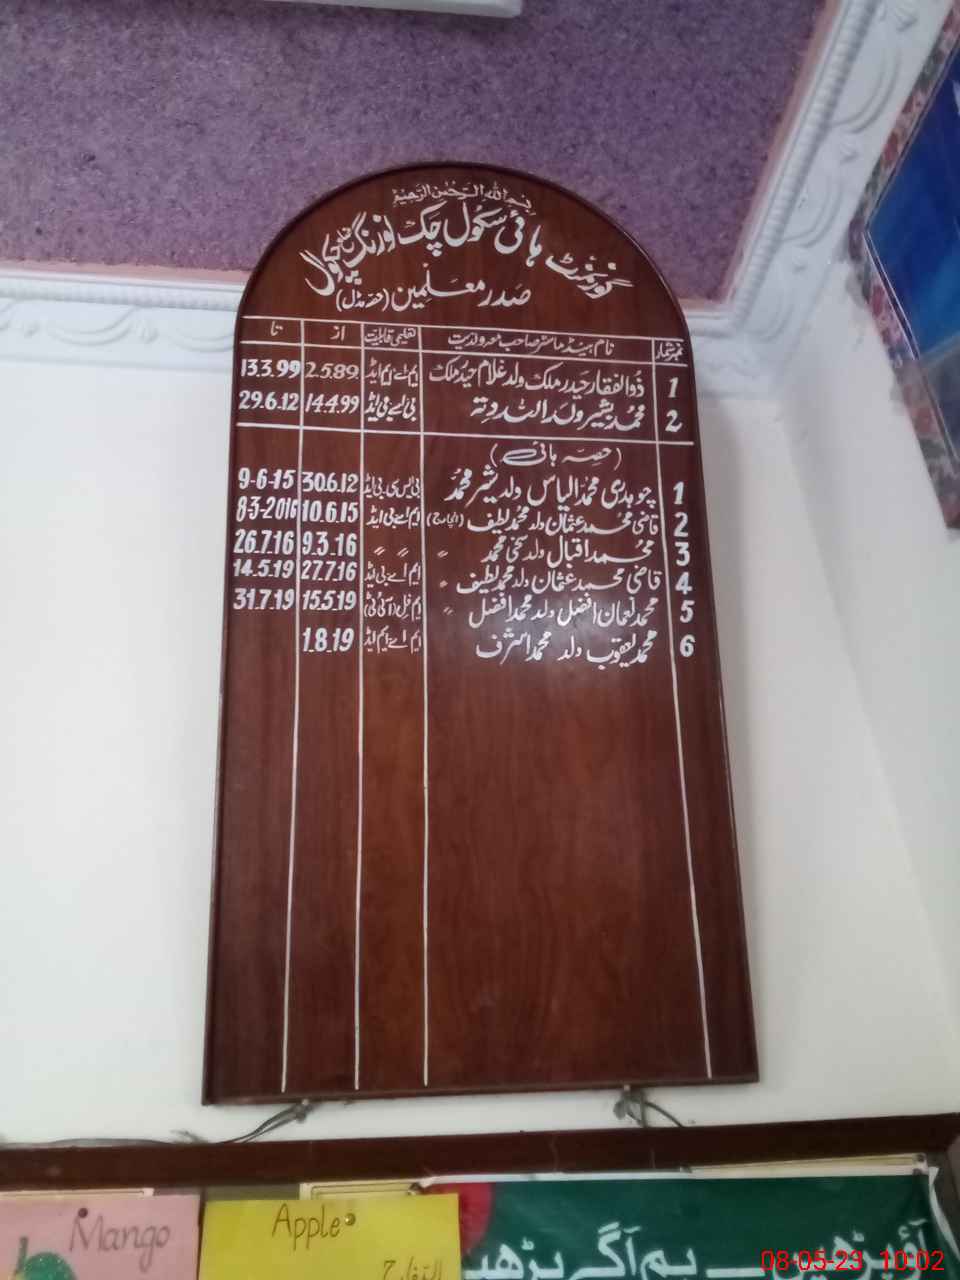 بسم اللہ الرحمٰن الرحیم
گورنمنٹ ہائی سکول چک نورنگ ضلع چکوال
صدر معلمین (حصہ مڈل)
نمبر شمار نام ہیڈ ماسٹر صاحب معہ ولدیت تعلیمی قابلیت از تا
1 ذوالفقار حیدر ملک ولد غلام حیدر ملک ایم اے ایم ایڈ 2.5.89 13.3.99
2 محمد بشیر ولد اللہ دتہ بی اے بی ایڈ 14.4.99 29.6.12
(حصہ ہائی)
1 چوہدری محمد الیاس ولد بشیر محمد بی ایس سی بی ایڈ 30.6.12 9-6-15
2 قاضی محمد عثمان ولد محمد لطیف (انچارج) ایم اے بی ایڈ 10.6.15 8-3-2016
3 محمد اقبال ولد سخی محمد 〃 〃 〃 9.3.16 26.7.16
4 قاضی محمد عثمان ولد محمد لطیف 〃 ایم اے بی ایڈ 27.7.16 14.5.19
5 محمد نعمان افضل ولد محمد افضل 〃 ایم فل (آئی ٹی) 15.5.19 31.7.19
6 محمد یعقوب ولد محمد اشرف ایم اے ایم ایڈ 1.8.19
Mango
Apple
التفاح
آئیں پڑھیں ہم آگے بڑھیں
08-05-23 10:02